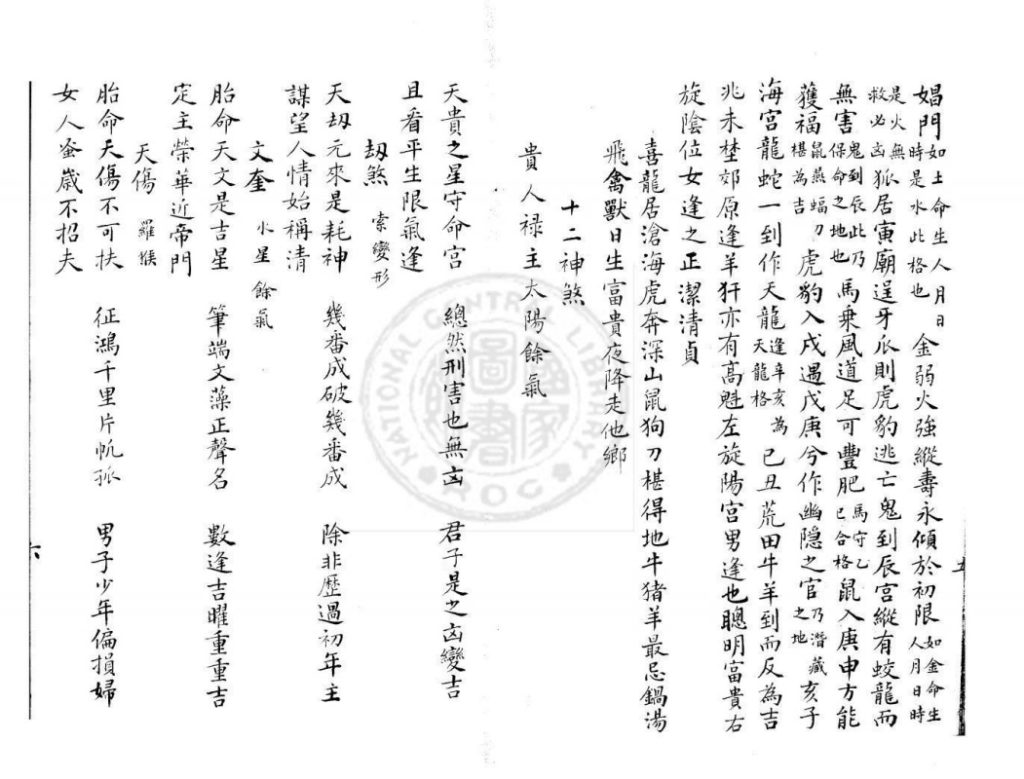 娼門如土命生人月日時是水此格也金弱火強縱壽永傾於初限如金命生人月日時
是火無救必凶狐居寅廟逞牙爪則虎豹逃亡鬼到辰宮縱有蛟龍而
無害鬼到辰此乃保命之地也馬乘風道足可豐肥馬守乙巳合格鼠入庚申方能
獲福鼠燕蝠刀椹為吉虎豹入戌遇戊庚今作幽隱之官乃潛藏之地亥子
海宮龍蛇一到作天龍逢辛亥為天龍格己丑荒田牛羊到而反為吉
兆未埜郊原逢羊犴亦有高魁左旋陽宮男逢也聰明富貴右
旋陰位女逢之正潔清貞
喜龍居滄海虎奔深山鼠狗刀椹得地牛猪羊最忌鍋湯
飛禽獸日生富貴夜降走他鄉
十二神煞
貴人祿主太陽餘氣
天貴之星守命宮 總然刑害也無凶 君子是之凶變吉
且看平生限氣逢
刼煞 索變形
天刼元來是耗神 幾番成破幾番成 除非歷過初年主
謀望人情始稱清
文奎 水星餘氣
胎命天文是吉星 筆端文藻正聲名 數逢吉曜重重吉
定主榮華近帝門
天傷 羅猴
胎命天傷不可扶 征鴻千里片帆孤 男子少年偏損婦
女人蚤歲不招夫
五
六
NATIONAL CENTRAL LIBRARY
ROC
國家圖書館